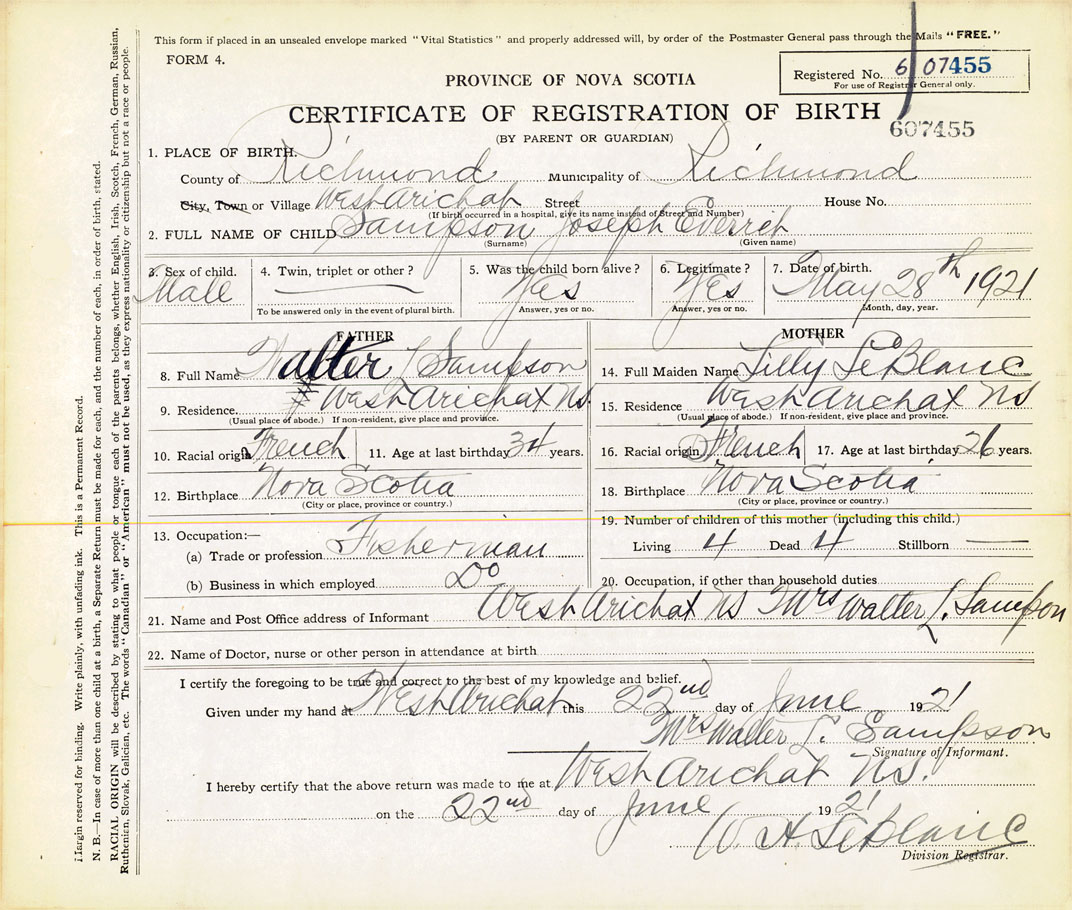 This form if placed in an unsealed envelope marked "Vital Statistics" and properly addressed will, by order of the Postmaster General pass through the Mails "FREE."
FORM 4.
Registered No. 607455
For use of Registrar General only.
PROVINCE OF NOVA SCOTIA
CERTIFICATE OF REGISTRATION OF BIRTH
607455
(BY PARENT OR GUARDIAN)
1. PLACE OF BIRTH.
County of Richmond Municipality of Richmond
City, Town or Village West Arichat Street House No.
(If birth occurred in a hospital, give its name instead of Street and Number)
2. FULL NAME OF CHILD Sampson Joseph Everich
(Surname) (Given name)
3. Sex of child. Male
4. Twin, triplet or other?
To be answered only in the event of plural birth.
5. Was the child born alive? Yes
Answer, yes or no.
6. Legitimate? Yes
Answer, yes or no.
7. Date of birth. May 28th 1921
Month, day, year.
FATHER
8. Full Name Walter L Sampson
9. Residence. West Arichat NS.
(Usual place of abode.) If non-resident, give place and province.
10. Racial origin French 11. Age at last birthday 34 years.
12. Birthplace Nova Scotia
(City or place, province or country.)
13. Occupation:—
(a) Trade or profession Fisherman
(b) Business in which employed Do
MOTHER
14. Full Maiden Name Lilly LeBlanc
15. Residence West Arichat NS
(Usual place of abode.) If non-resident, give place and province.
16. Racial origin French 17. Age at last birthday 26 years.
18. Birthplace Nova Scotia
(City or place, province or country.)
19. Number of children of this mother (including this child.)
Living 4 Dead 4 Stillborn —
20. Occupation, if other than household duties
21. Name and Post Office address of Informant West Arichat NS Mrs Walter L. Sampson
22. Name of Doctor, nurse or other person in attendance at birth
I certify the foregoing to be true and correct to the best of my knowledge and belief.
Given under my hand at West Arichat this 22nd day of June 1921
Mrs Walter L. Sampson
Signature of Informant.
I hereby certify that the above return was made to me at West Arichat NS.
on the 22nd day of June 1921
W. A. LeBlanc
Division Registrar.
Margin reserved for binding. Write plainly, with unfading ink. This is a Permanent Record.
N. B.—In case of more than one child at a birth, a Separate Return must be made for each, and the number of each, in order of birth, stated.
RACIAL ORIGIN will be described by stating to what people or tongue each of the parents belongs, whether English, Irish, Scotch, French, German, Russian,
Ruthenian, Slovak, Galician, etc. The words "Canadian" or "American" must not be used, as they express nationality or citizenship but not a race or people.